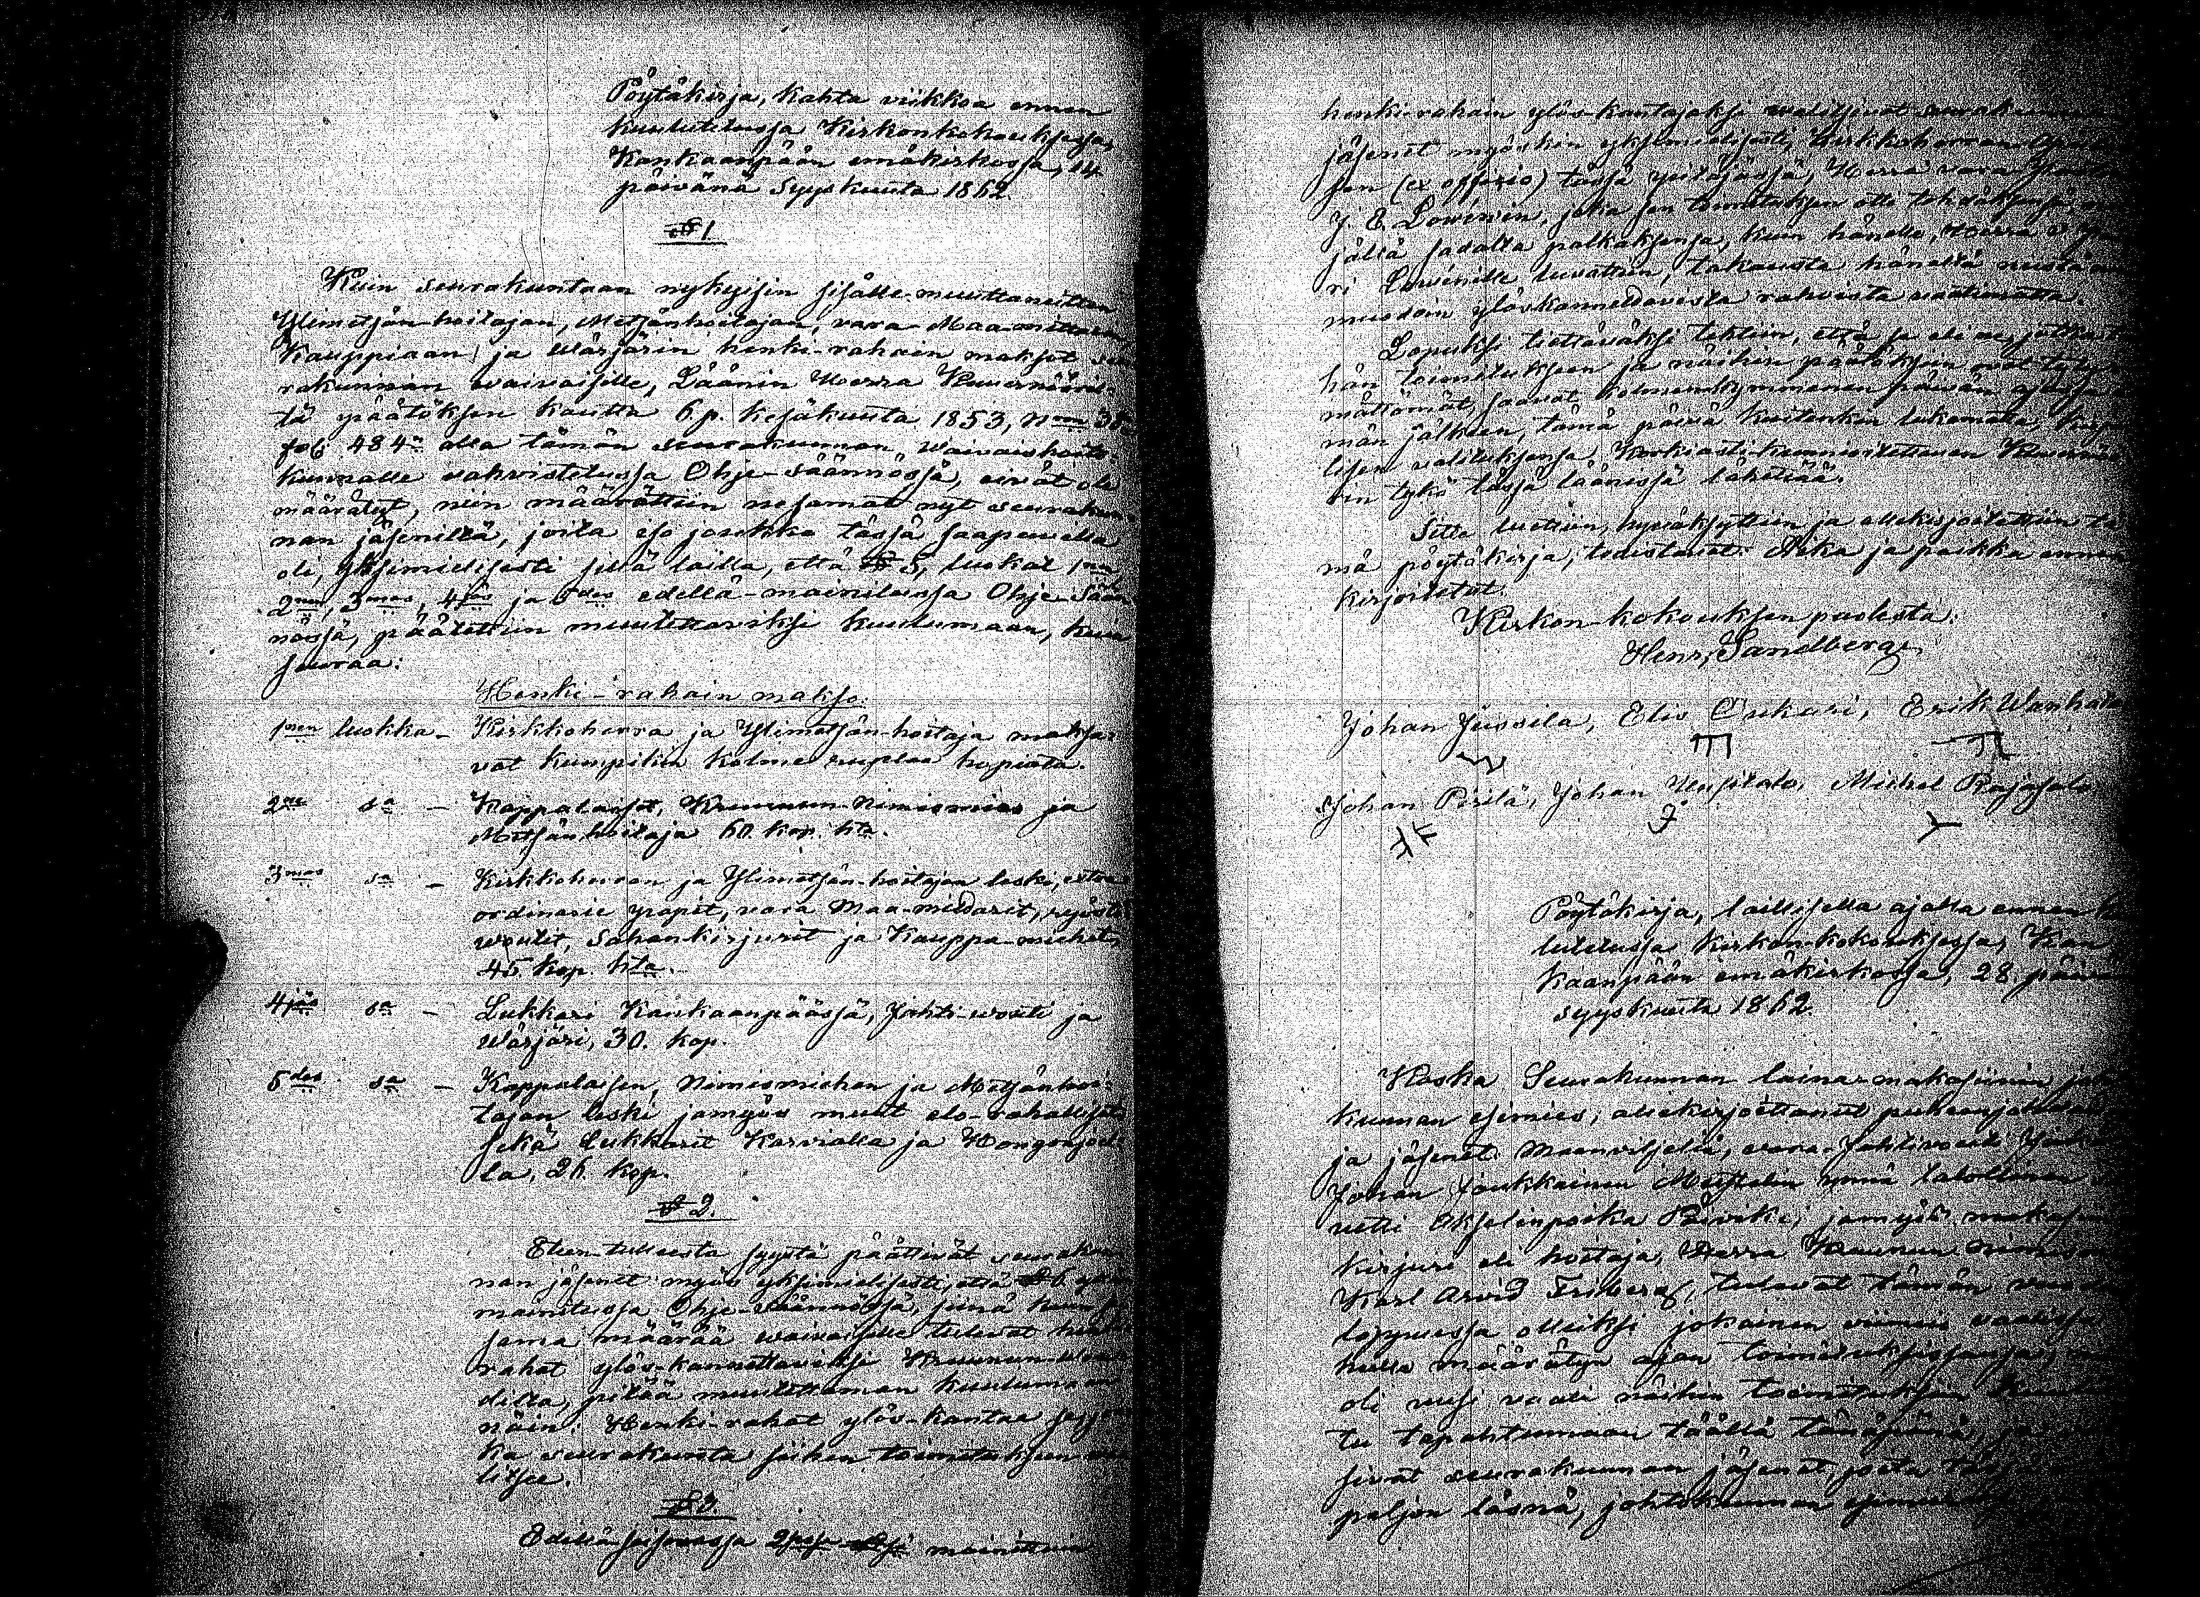 Pöytäkirja, kahta viikkoa ennen
kuulutetussa Kirkonkokouksessa,
Kankaanpään emäkirkossa, 14
päivänä Syyskuuta 1862.
§ 1
Kuin seurakuntaan nykyisin sisälle-muuttaneitten
Ylimetsän-hoitajan, Metsänhoitajan, vara-Maa-mittarin
Kauppiaan ja Wärjärin henki-rahain maksot seu
rakunnan waivaisille, Läänin Herra Kuvernöörin
tä päätöksen kautta 6 p. kesäkuuta 1853, Nron 38
fol 484 alla tämän seurakunnan Waivaishoito
kunnalle vahvistetussa Ohje-säännössä, eivät ole
määrätyt, niin määrättiin nesamat nyt seurakun-
nan jäseniltä, joita iso joukko tässä saapuvilla
oli, yksimielisesti sillä lailla, että § 5, luokat 1en
2nen, 3mas, 4jäs ja 5des edellä-mainitussa Ohje-Sään
nössä, päätettiin muutettaviksi kuulumaan, kuin
seuraa:
Henki-rahain makso.
1nen luokka - Kirkkoherra ja Ylimetsän-hoitaja maksa-
vat kumpikin kolme ruplaa hopiata.
2nen sa - Kappalaiset, Kruunun Nimismies ja
Metsänhoitaja 60. kop. hta.
3mas sa - Kirkkoherran ja Ylimetsän-hoitajan leski, extra
ordinarie papit, vara Maa-mittarit, ryöstö
woutit, Sahankirjurit ja Kauppa-miehet,
45 kop. hta.
4jäs sa - Lukkari Kankaanpäässä, Jahti-wouti ja
Wärjäri, 30. kop.
5des sa - Kappalaisen, Nimismiehen ja Metsänhoi-
tajan leski jamyös muut elo-rahalliset
sekä Lukkarit Karvialla ja Hongonjoel
la, 26. kop.
§ 2.
Eteen-tulleesta syystä päättivät seurakun
nan jäsenet myös yksimielisesti, että § 6 yllä
mainitussa Ohje-säännössä, siinä kuin
sama määrää waivaisille tulevat henki
rahat ylös-kannettaviksi Kruunun-Wou
dilta, pitää muutettaman kuulumaan
näin: Henki-rahat ylös-kantaa se, jon
ka seurakunta siihen toimitukseen wa
litsee.
§ 3.
Edellä-seisovassa mainittuin
henki-rahain ylös-kantajaksi walitsivat seurakunnan
jäsenet myöskin yksimielisesti, Kirkkoherran
sen (ex officio) tässä pitäjässä, Herra vara
J. E. Lowénin, joka sen toimituksen otti tehdäksensä,
jällä sadalta palkaksensa, kuin hänelle, Herra
ri Lowénille luvattiin, takausta häneltä niistä
muodoin ylöskannettavista rahoista vaatimatta.
Lopuksi tiettäväksi tehtiin, että se eli ne, jotka
hän toimitukseen ja näihin päätöksiin ovat tyty
mättömät, saavat kolmenkymmenen päivän ajassa
män jälkeen, tämä päivä kuitenkin lukematta, kirja
lisen valituksensa Korkiasti-kunnioitettavan Kuvernöö
rin tykö tässä läänissä lähettää.
Sitte luettiin, hyväksyttiin ja allekirjoitettiin tä
mä pöytäkirja; todistavat. Aika ja paikka ennen
kirjoitetut.
Kirkon-kokouksen puolesta:
Henr. Sandberg,
Johan Jussila, Elis Cukuri, Erik Wanhata
Johan Pirilä, Johan Uusitalo, Michel Rajasalo
Pöytäkirja, laillisella ajalla ennen ku
lutetussa Kirkon-kokouksessa, Kan
kaanpään emäkirkossa, 28. päivänä
syyskuuta 1862.
Koska Seurakunnan laina-makasiinin joh
kunnan esimies, allekirjoittanut puheenjohtaja
ja jäsenet: Maanviljeliä, vara-Jahtivouti
Johan Joukkainen ynnä talollinen
vetti Akselinpoika Päiviki, jamyös makasi
kirjuri eli hoitaja, Herra Kruunun Nimismies
Karl Arvid Friberg, tulevat tämän vuoden
lopussa olleiksi jokainen viimeis vaalissa
hulle määrätyn ajan toimituksissansa,
oli uusi vaali näihin toimituksiin kuulu
tu tapahtumaan täällä tänäpänä,
sivat seurakunnan jäsenet, joita
paljon läsnä, johtokunnan esimie